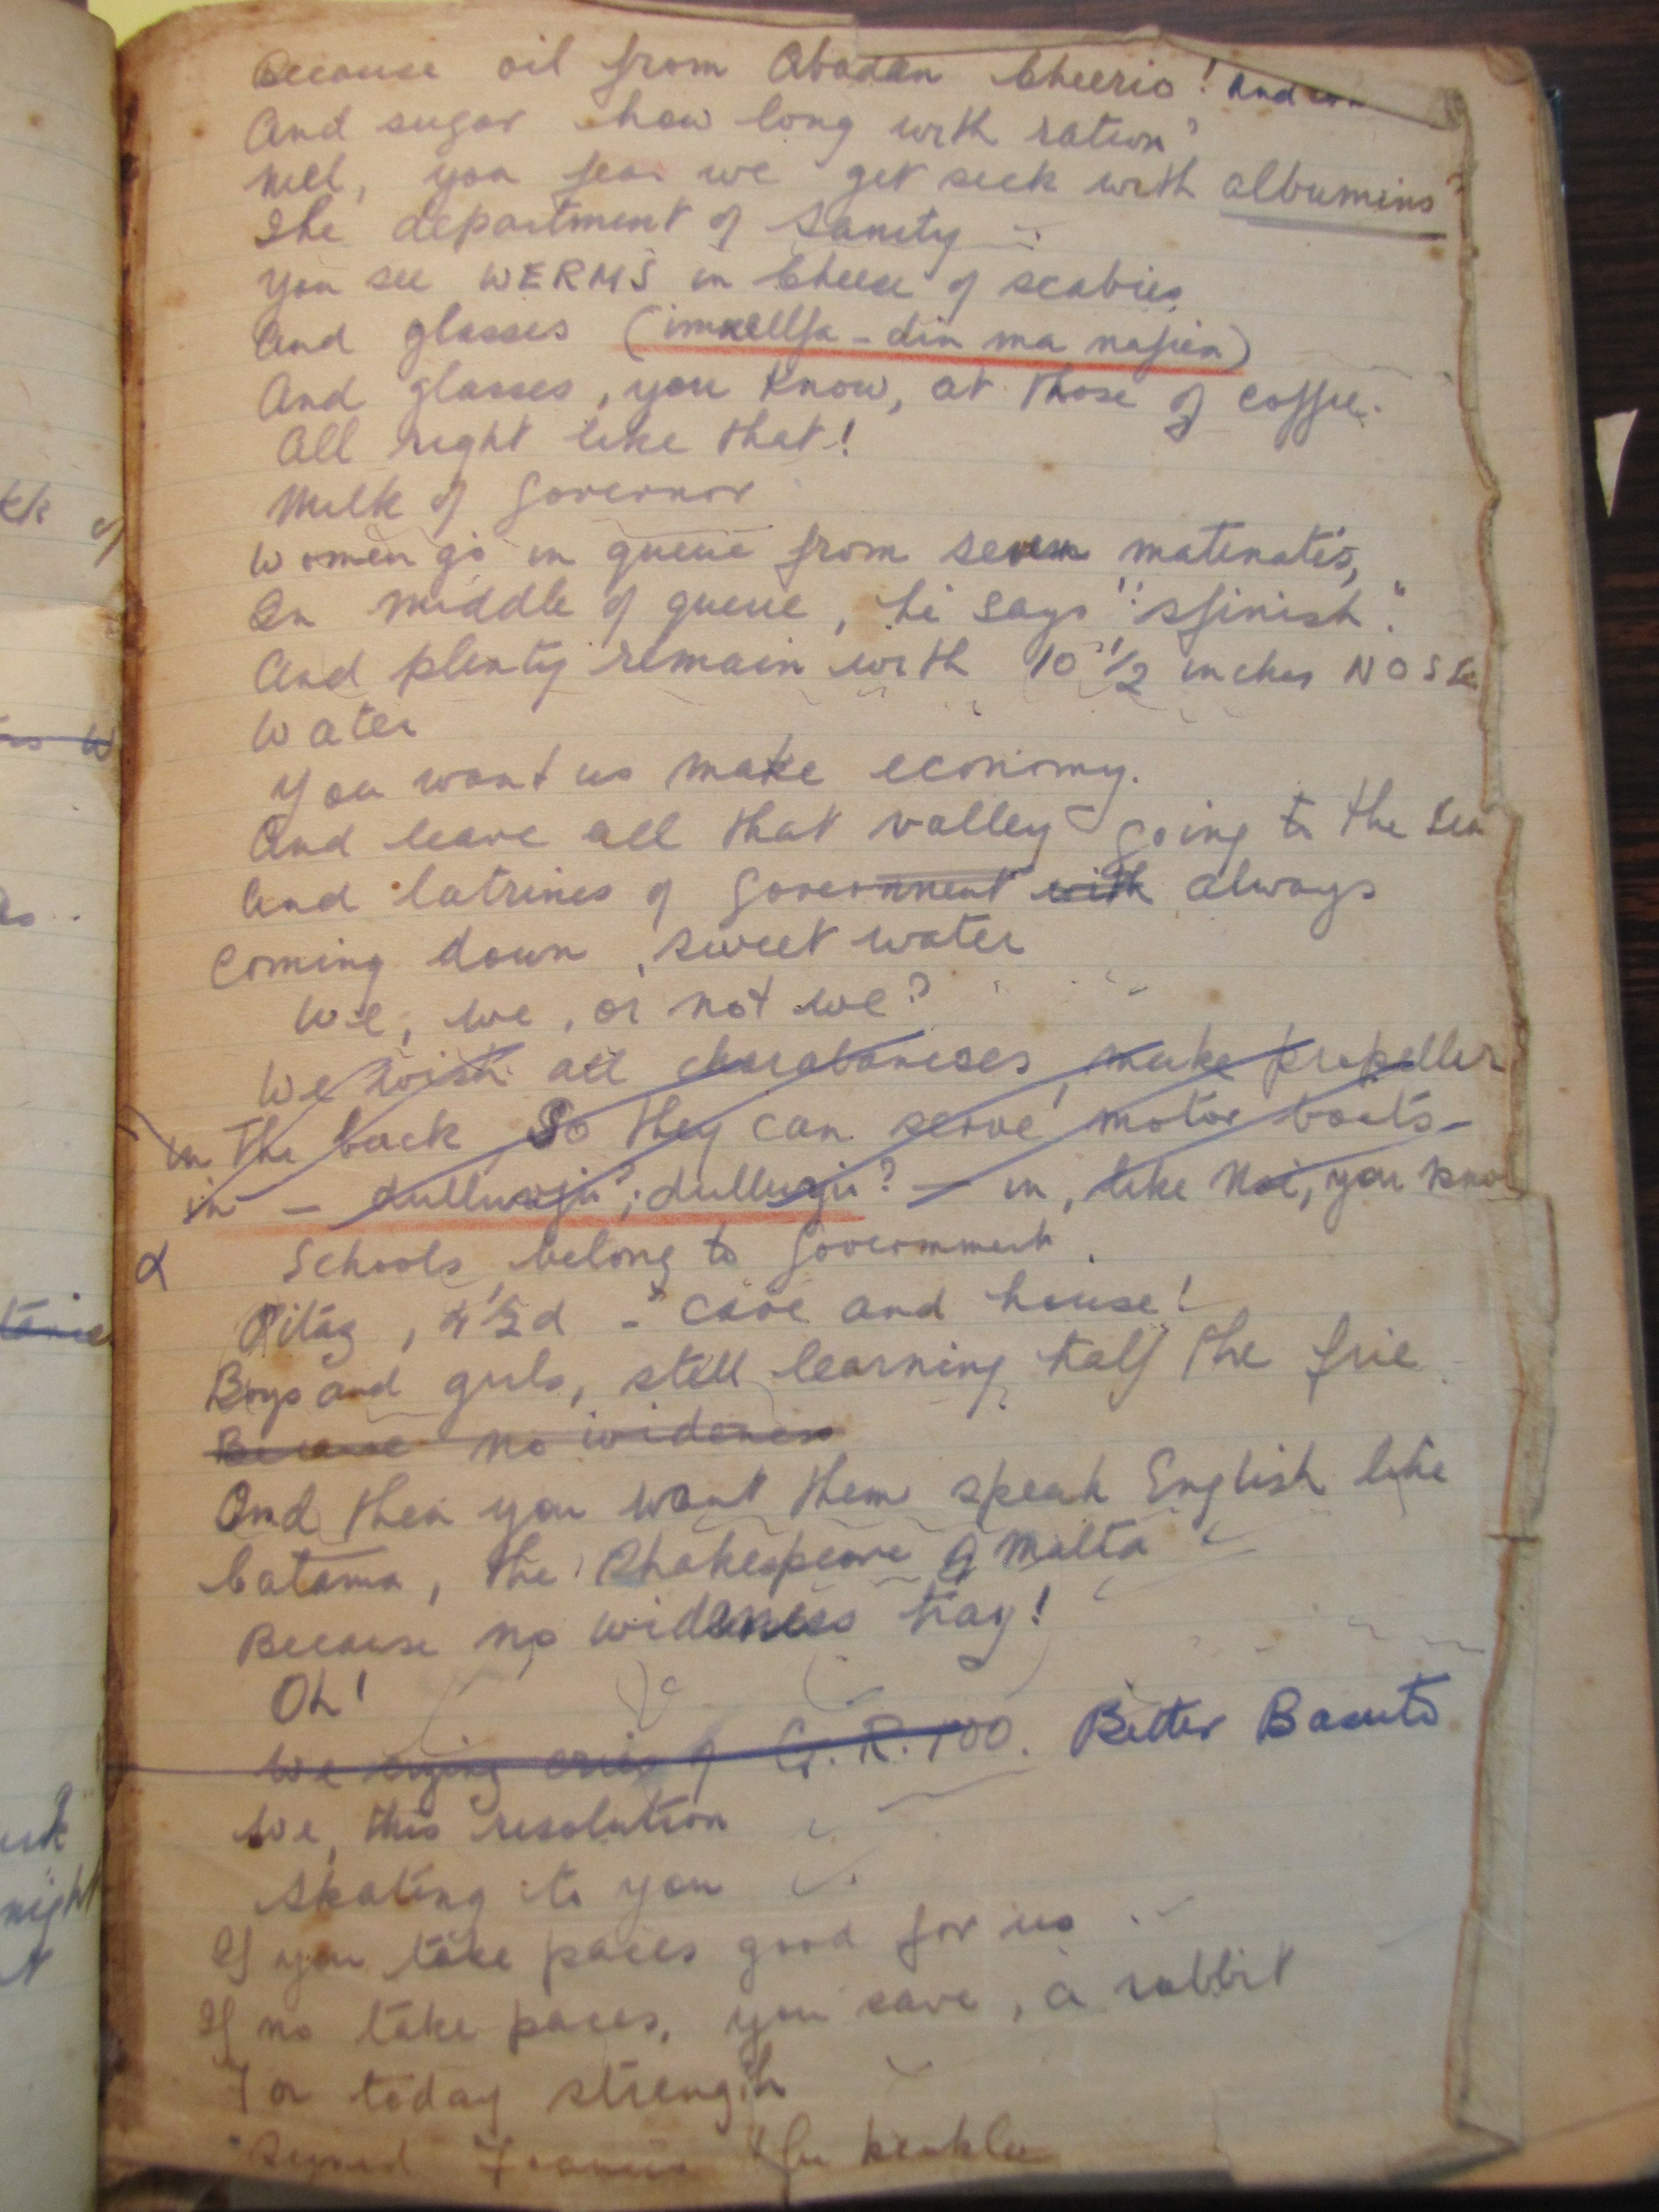 Because oil from Abadan Cheerio! And
And sugar how long with ration?
Well, you fear we get seek with albumins?
The department of Sanity
You see WERMS in Cheese of scabies
And glasses (imxellfa - din ma nafiex)
And glasses, you know, at those of coffee.
All right like that!
Milk of Governor
Women go in queue from seven matinatis,
In middle of queue, he says: "sfinish".
And plenty remain with 10 1/2 inches NOSE
Water
You want us make economy.
And leave all that valley going to the Sea
And latrines of Government with always
Coming down, sweet water
We, we, or not we?
We wish all charabancses, make propeller
in the back So they can serve motor boats
in - dulluvju; dulluvju? - in, like Noi, you know
Schools belong to Government.
4 1/2d - Cave and house!
Boys and girls, still learning half the frie
Because no wideness
And then you want them speak English like
Catania, the Shakespeare of Malta
Because no wideness tray!
Oh!
We crying cries of G.R. 100. Better Basuto
We, this resolution
Skating to you
If you take paces good for us
If no take paces, you save, a rabbit
For today strength
Signed